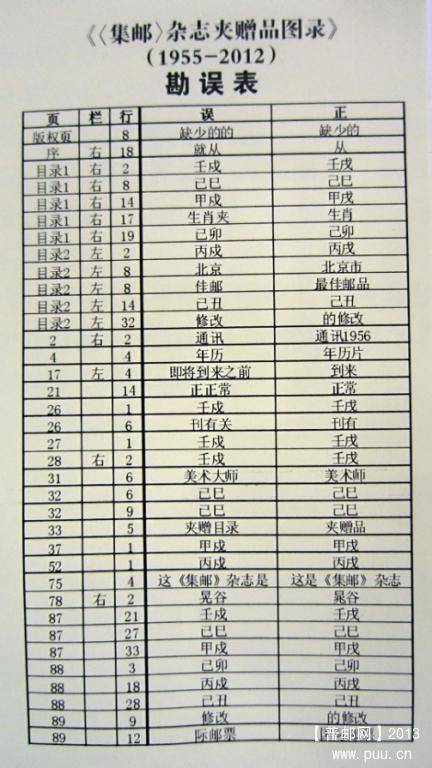 《〈集邮〉杂志夹赠品图录》
(1955-2012)
勘误表
页 栏 行 误 正
版权页 8 缺少的的 缺少的
序 右 18 就从 从
目录1 右 2 壬戍 壬戌
目录1 右 8 己巳 己巳
目录1 右 14 甲戍 甲戌
目录1 右 17 生肖夹 生肖
目录1 右 19 己卯 己卯
目录2 左 2 丙戍 丙戌
目录2 左 8 北京 北京市
目录2 左 8 佳邮 最佳邮品
目录2 左 14 己丑 己丑
目录2 左 32 修改 的修改
2 右 2 通讯 通讯1956
4 4 年历 年历片
17 左 4 即将到来之前 到来
21 14 正正常 正常
26 1 壬戍 壬戌
26 6 刊有关 刊有
27 1 壬戍 壬戌
28 右 2 壬戍 壬戌
31 6 美术大师 美术师
32 6 己巳 己巳
32 9 己巳 己巳
33 5 夹赠目录 夹赠品
37 1 甲戍 甲戌
52 1 丙戍 丙戌
75 4 这《集邮》杂志是 这是《集邮》杂志
78 右 2 晃谷 晁谷
87 21 壬戍 壬戌
87 27 己巳 己巳
87 33 甲戍 甲戌
88 3 己卯 己卯
88 18 丙戍 丙戌
88 28 己丑 己丑
89 9 修改 的修改
89 12 际邮票
【普邮网】2013
www.puu.cn